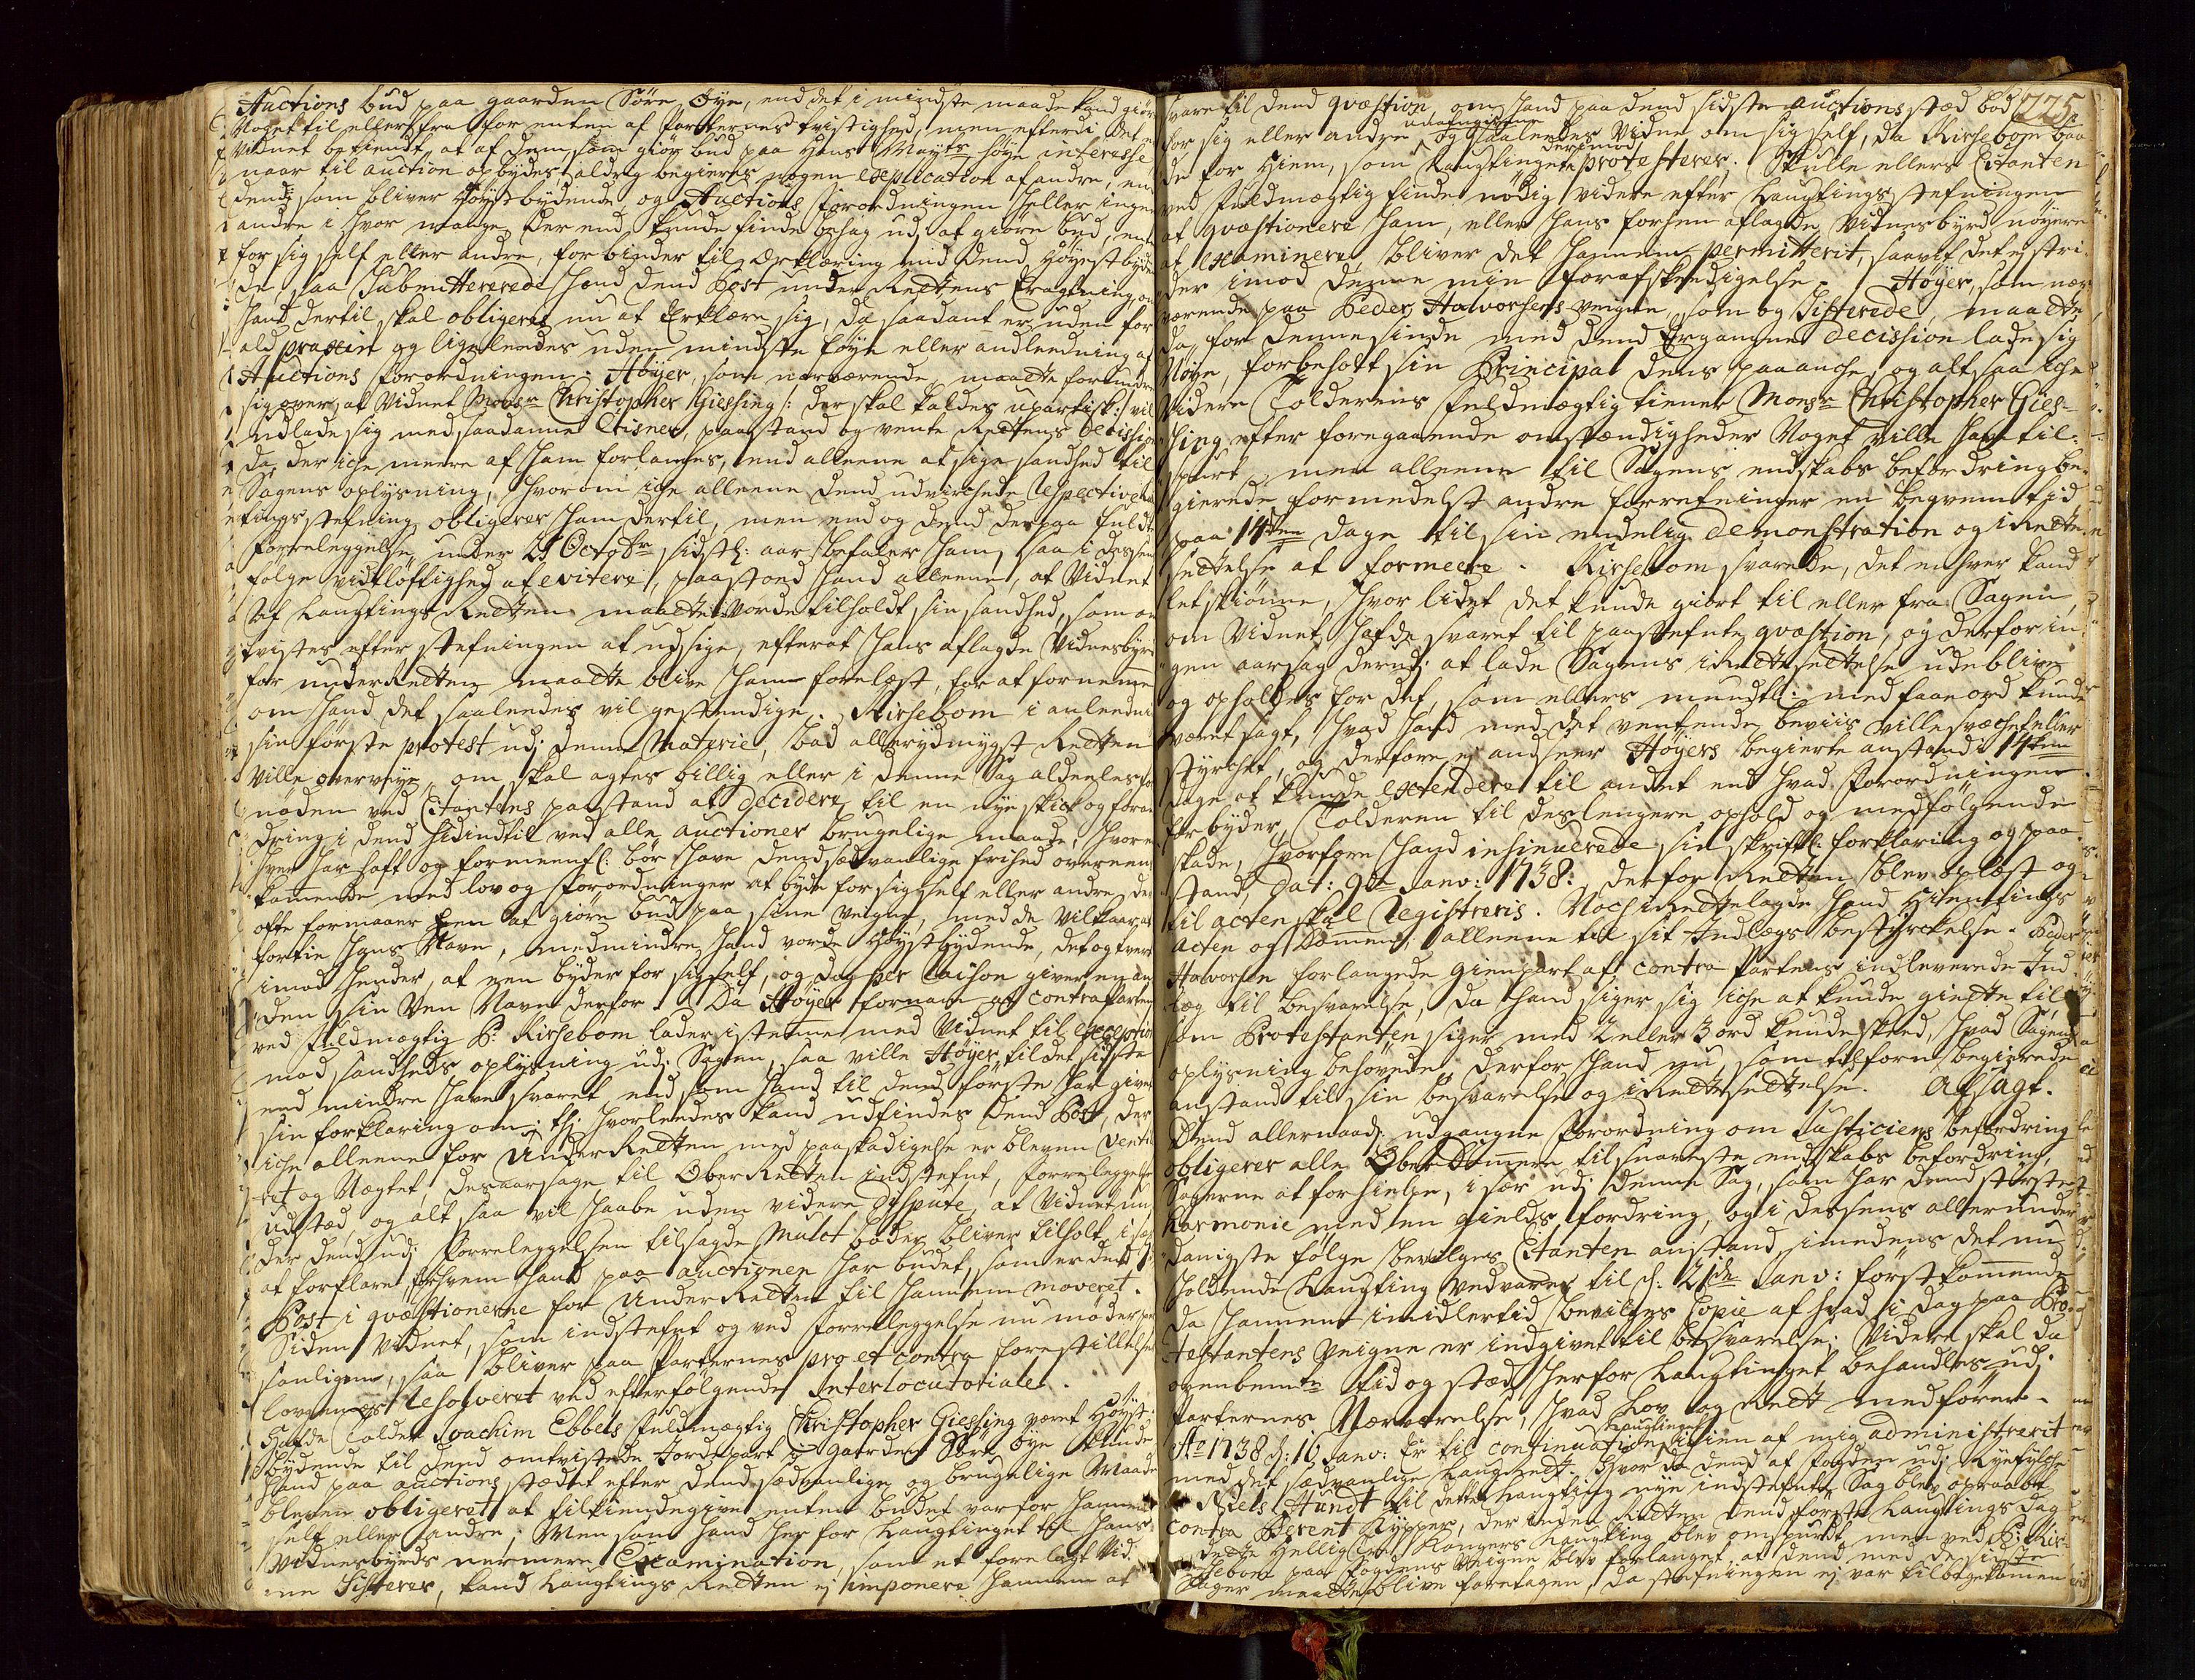 Auctions bud paa gaarden Söre Öye, end det i mindste maade kand giöre
Noget til eller fra for enten af Parternes tvistighed, men efterdi det er
Vidnet bekiendt, at af dem som giör bud paa Hans Mayts höye interesse
naar til auction opbydes aldrig begieres nogen explication af andre, end
dend som bliver höyst bydende og Auctions forordningen heller ingen
andre i hvor mange der end kunde finde behag udj at giöre bud, enten
for sig self eller andre, forbinder til Erklæring uid dend höyestbyden
de, saa Submitterede hand dend Post under Rettens Eragtning, om
hand dertil skal obligeres nu at Erklære sig, da saadant er uden for
ald praxin og ligeleedes uden mindste föye eller andleedning af
Auctions forordningen. Höyer, som nærværende maatte forundre
sig over, at Vidnet Monsr Christopher Giessing /: der skal kaldes upartisk:/ vil
udlade sig med saadanne paastand og vente Rettens Decission
da, der iche meere af ham forlanges, end alleene at sige sandhed til
Sagens oplysning, hvorom iche alleene dend udvirchede respective
tings stefning obligerer ham dertil, men end og dend derpaa fuldte
forreleggelse under 25 Octobr sidstl: aar befaler ham, saa i dessen
fölge vidtlöftighed at evitere, paastoed hand alleene, at Vidnet
af Laugtings Retten maatte vorde tilholdt sin sandhed, som om
tvistes efter stefningen at udsige, efter at hans aflagde Vidnesbyrd
for underRetten maatte blive ham forelæst, for at fornemme
om hand det saaleedes vil gestendige. Kirsebom i anleedning
sin förste protest udj denne Materie, bad allerydmygst Retten
Ville overveye, om skal agtes billig eller i denne Sag aldeeles for
nöden ved Citantens paastand at decidere til en nye skick og foran
dring i dend hidindtil ved alle auctioner brugelige maade, hvor en
hver har haft og formeentl: bör have dend sædvanlige frihed overeens
kommende med lov og forordninger at byde for sig self eller andre, der
ofte formaaer een at giöre bud paa sine Veigne, med de vilkaar at
fortie hans Navn, medmindre hand vorde höystbydende, det og tvert
imod hender, at een byder for sig self, og dog per raison giver en an
den sin Ven Navn derfor. Da Höyer fornam at contraParten
ved fuldmægtig P: Kirsebom lader istemme med Vidnet til exception
mod sandheds oplysning udj Sagen, saa ville Höyer til det sidste
end mindre have svaret, end som hand til dend förste har givet
sin forklaring om: th: hvorleedes kand udfindes dend Post, der
iche alleene for UnderRetten med paaskadigelse er bleven Venti
ret og Nægtet, desaarsage til OberRetten indstefnt, forreleggelse
udstæd, og alt saa vil haabe uden videre Dispute, at Vidnet un
der dend udj forreleggelsen tilsagde Mulct böder bliver tilholt i sag
at forklare for hvem hand paa auctionen har budet, som er dend
Post i qvæstionerne for UnderRetten til hannem moveret.
Siden Vidnet, som indstefnt og ved forreleggelse nu möder per
sonligen, saa bliver paa Parternes pro et contra forestillelse
lovgemæs resolveret ved efterfölgende Interlocutoriale.
Hafde Tolder Joachim Ebbels fuldmægtig Christopher Giessing været höyst
bydende til dend omtvistede Jordepart Gaarden Söre öye kunde
hand paa auctions stædet efter dend sædvanlige og brugelige Maade
bleven obligeret at tilkiendegive enten budet var for hannem
self eller andre; Men som hand her for Laugtinget til hans
Vidnesbyrds nermere Examination, som et forelagt Vid-
ne Sisterer, kand Laugtings Retten ej imponere hannem at
225
svare til dend qvæstion, om hand paa dend sidste auctions stæd bød
for sig eller andre udtrychligen og saaleedes Vidne om sig self, da Kirsebom baa
de for Hiem, som Laugtinget derimod protesterer. Skulle ellers Citanten
ved fuldmægtig finde nödig videre efter Laugtings stefningen
at qvæstionere ham, eller hans forhen aflagde Vidnesbyrd nöyere
at examinere, bliver det hannem permitterit, saavit det ej stri
der imod denne min forafskeedigelse. Höyer, som nær
værende paa Peder Halvorsens veigne som og Sisterede, maatte
da for dennesinde med dend Ergangne decission lade sig
Nöye, forbeholt sin Principal dens paaanche, og altsaa iche
videre Tolderens fuldmægtig tiener Monsr Christopher Gies-
sing efter foregaaende omstændigheder Noget ville have til-
spurt, men alleene til Sagens endskabs befordring be-
gierede formedelst andre forretninger en beqvem tid
paa 14ten dage til sin endelig demonstration og i Rette
settelse at formere. Kirsebom svarede, det enhver kand
let skiönne, hvor lidet det kunde giört til eller fra Sagen,
om Vidnet hafde svaret til paastefnte qvæstion, og derfor in-
gen aarsag derudj at lade Sagens iRettesettelse udeblive
og opholdes for det, som ellers mundtl: med faae ord kunde
været sagt, hvad hand med det ventende beviis ville svæchet eller
styrchet, og derfore ej anseer Höyers begierte anstand i 14ten
dage at kunde extendere til andet end hvad forordningen
forbyder, Tolderen til deslengere ophold og medfölgende
skade, hvorfore hand insinuerede sin skriftl: forklaring og paa-
stand, dat: 9de Janv: 1738: derfor Retten blev oplæst og
til acten skal Registreris. Noch iRettelagde hand Hiemtings
acten og Dommen, alleene til sit Indlægs bestyrckelse. Peder
Halvorsen forlangede gienpart af contra Partens indleverede Ind-
læg til besvarelse, da hand siger sig iche at kunde giette til,
som Protestanten siger med 2 eller 3 ord kunde skeed, hvad Sagens
oplysning behövede, derfor hand nu, som tilforn begierede
anstand til sin besvarelse og iRettesettelse. Afsagt.
Dend allernaad: udgangne forordning om Justiciens befordring
obligerer alle OberDommere til snareste endskabs befordring,
Sagerne at forhielpe, i sær udj denne Sag, som har dend störste
Harmonie med en gields fordring, og i dessens allerunder
danigste fölge bevilges Citanten anstand, imedens det nu
holdende Laugting vedvarer til d: 21de Janv: förstkommende
da hannem imidlertid bevilges Copie af hvad i dag paa Pro-
testantens Veigne er indgivet til besvarelse; Videre skal da
ovenbemte tid og stæd her for Laugtinget behandles udj
Parternes Nærværelse, hvad Lov og Rett medförer.
Ao 1738 d: 16 Janv: Er til continuation Laugtinget igien af mig administrerit
med det sædvanlige Laugrett. Hvor da dend af fogden udj Ryefylche
Niels Hundt til dette Laugting nye indstefnte Sag blev opraabt
contra Berent Kypper, der inden Retten dend förste Laugtings dag
dette Hellig Tre Kongers Laugting blev omspurdt, men ved P: Kir-
sebom paa Fogdens Veigne blev forlanget, at dend med de sidste
Sager maatte blive foretagen, da stefningen ej var tilbagekommen